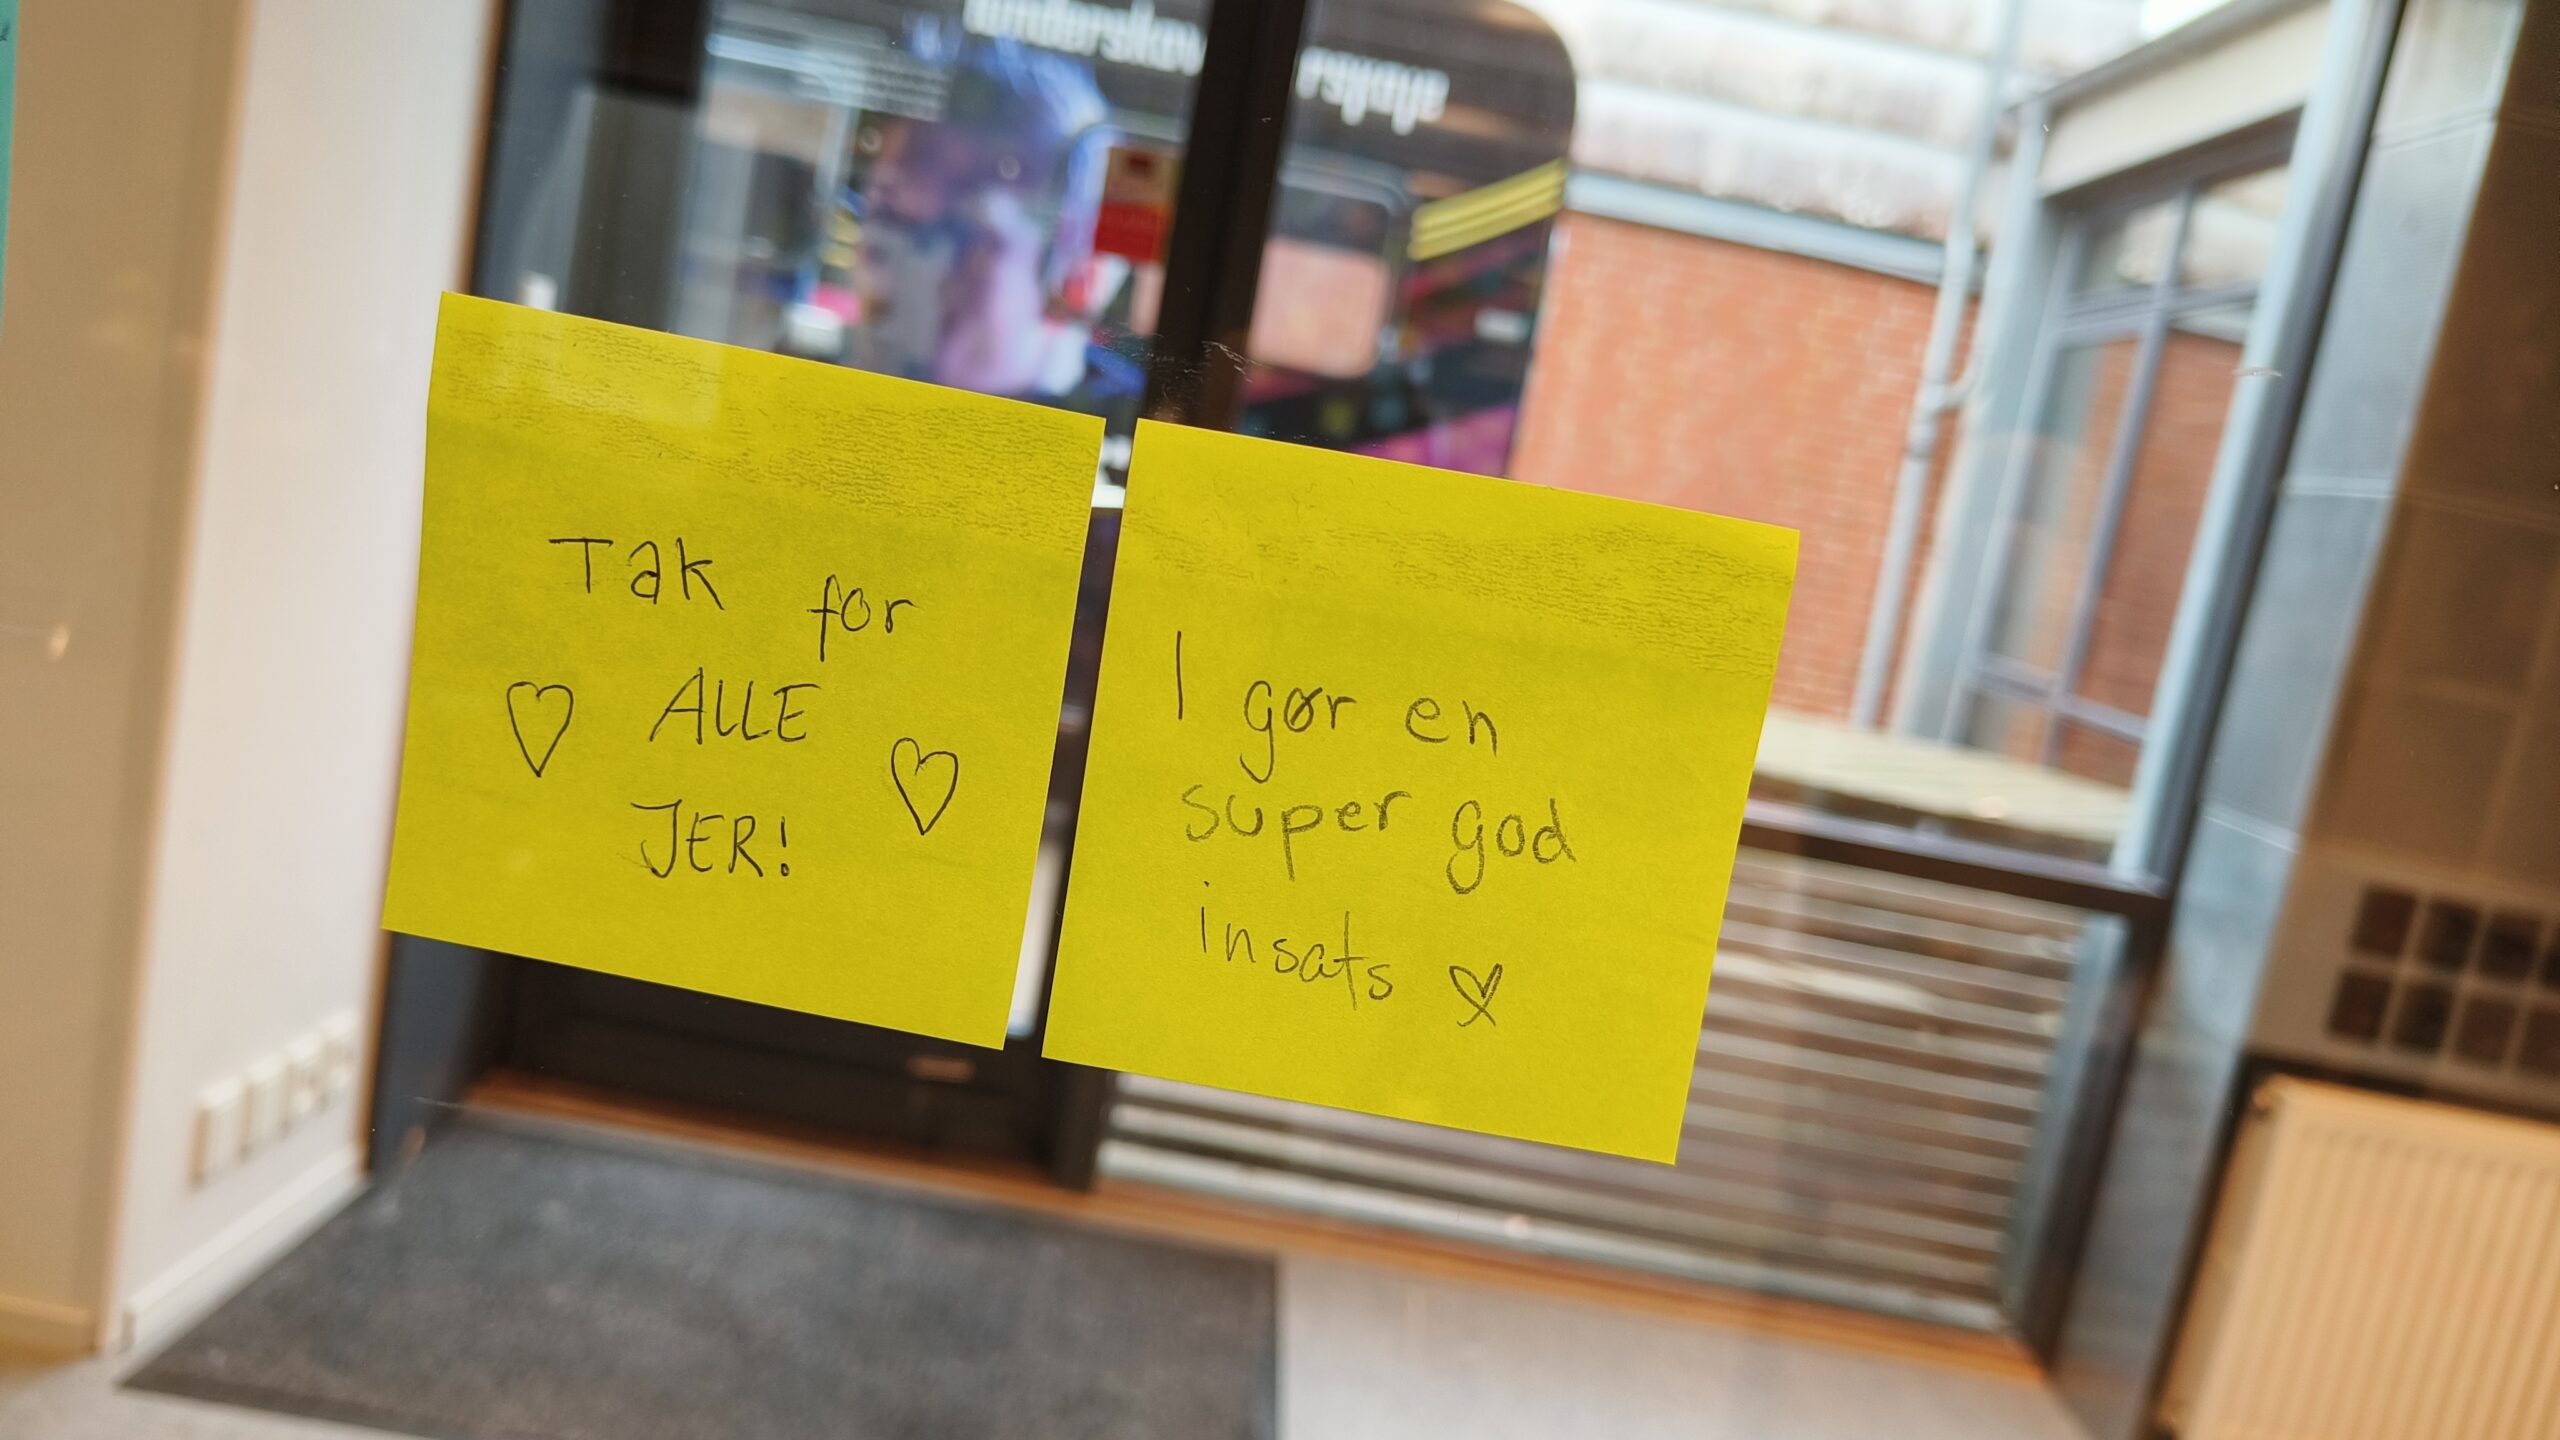 Tak for
ALLE
JER!
I gør en
super god
insats